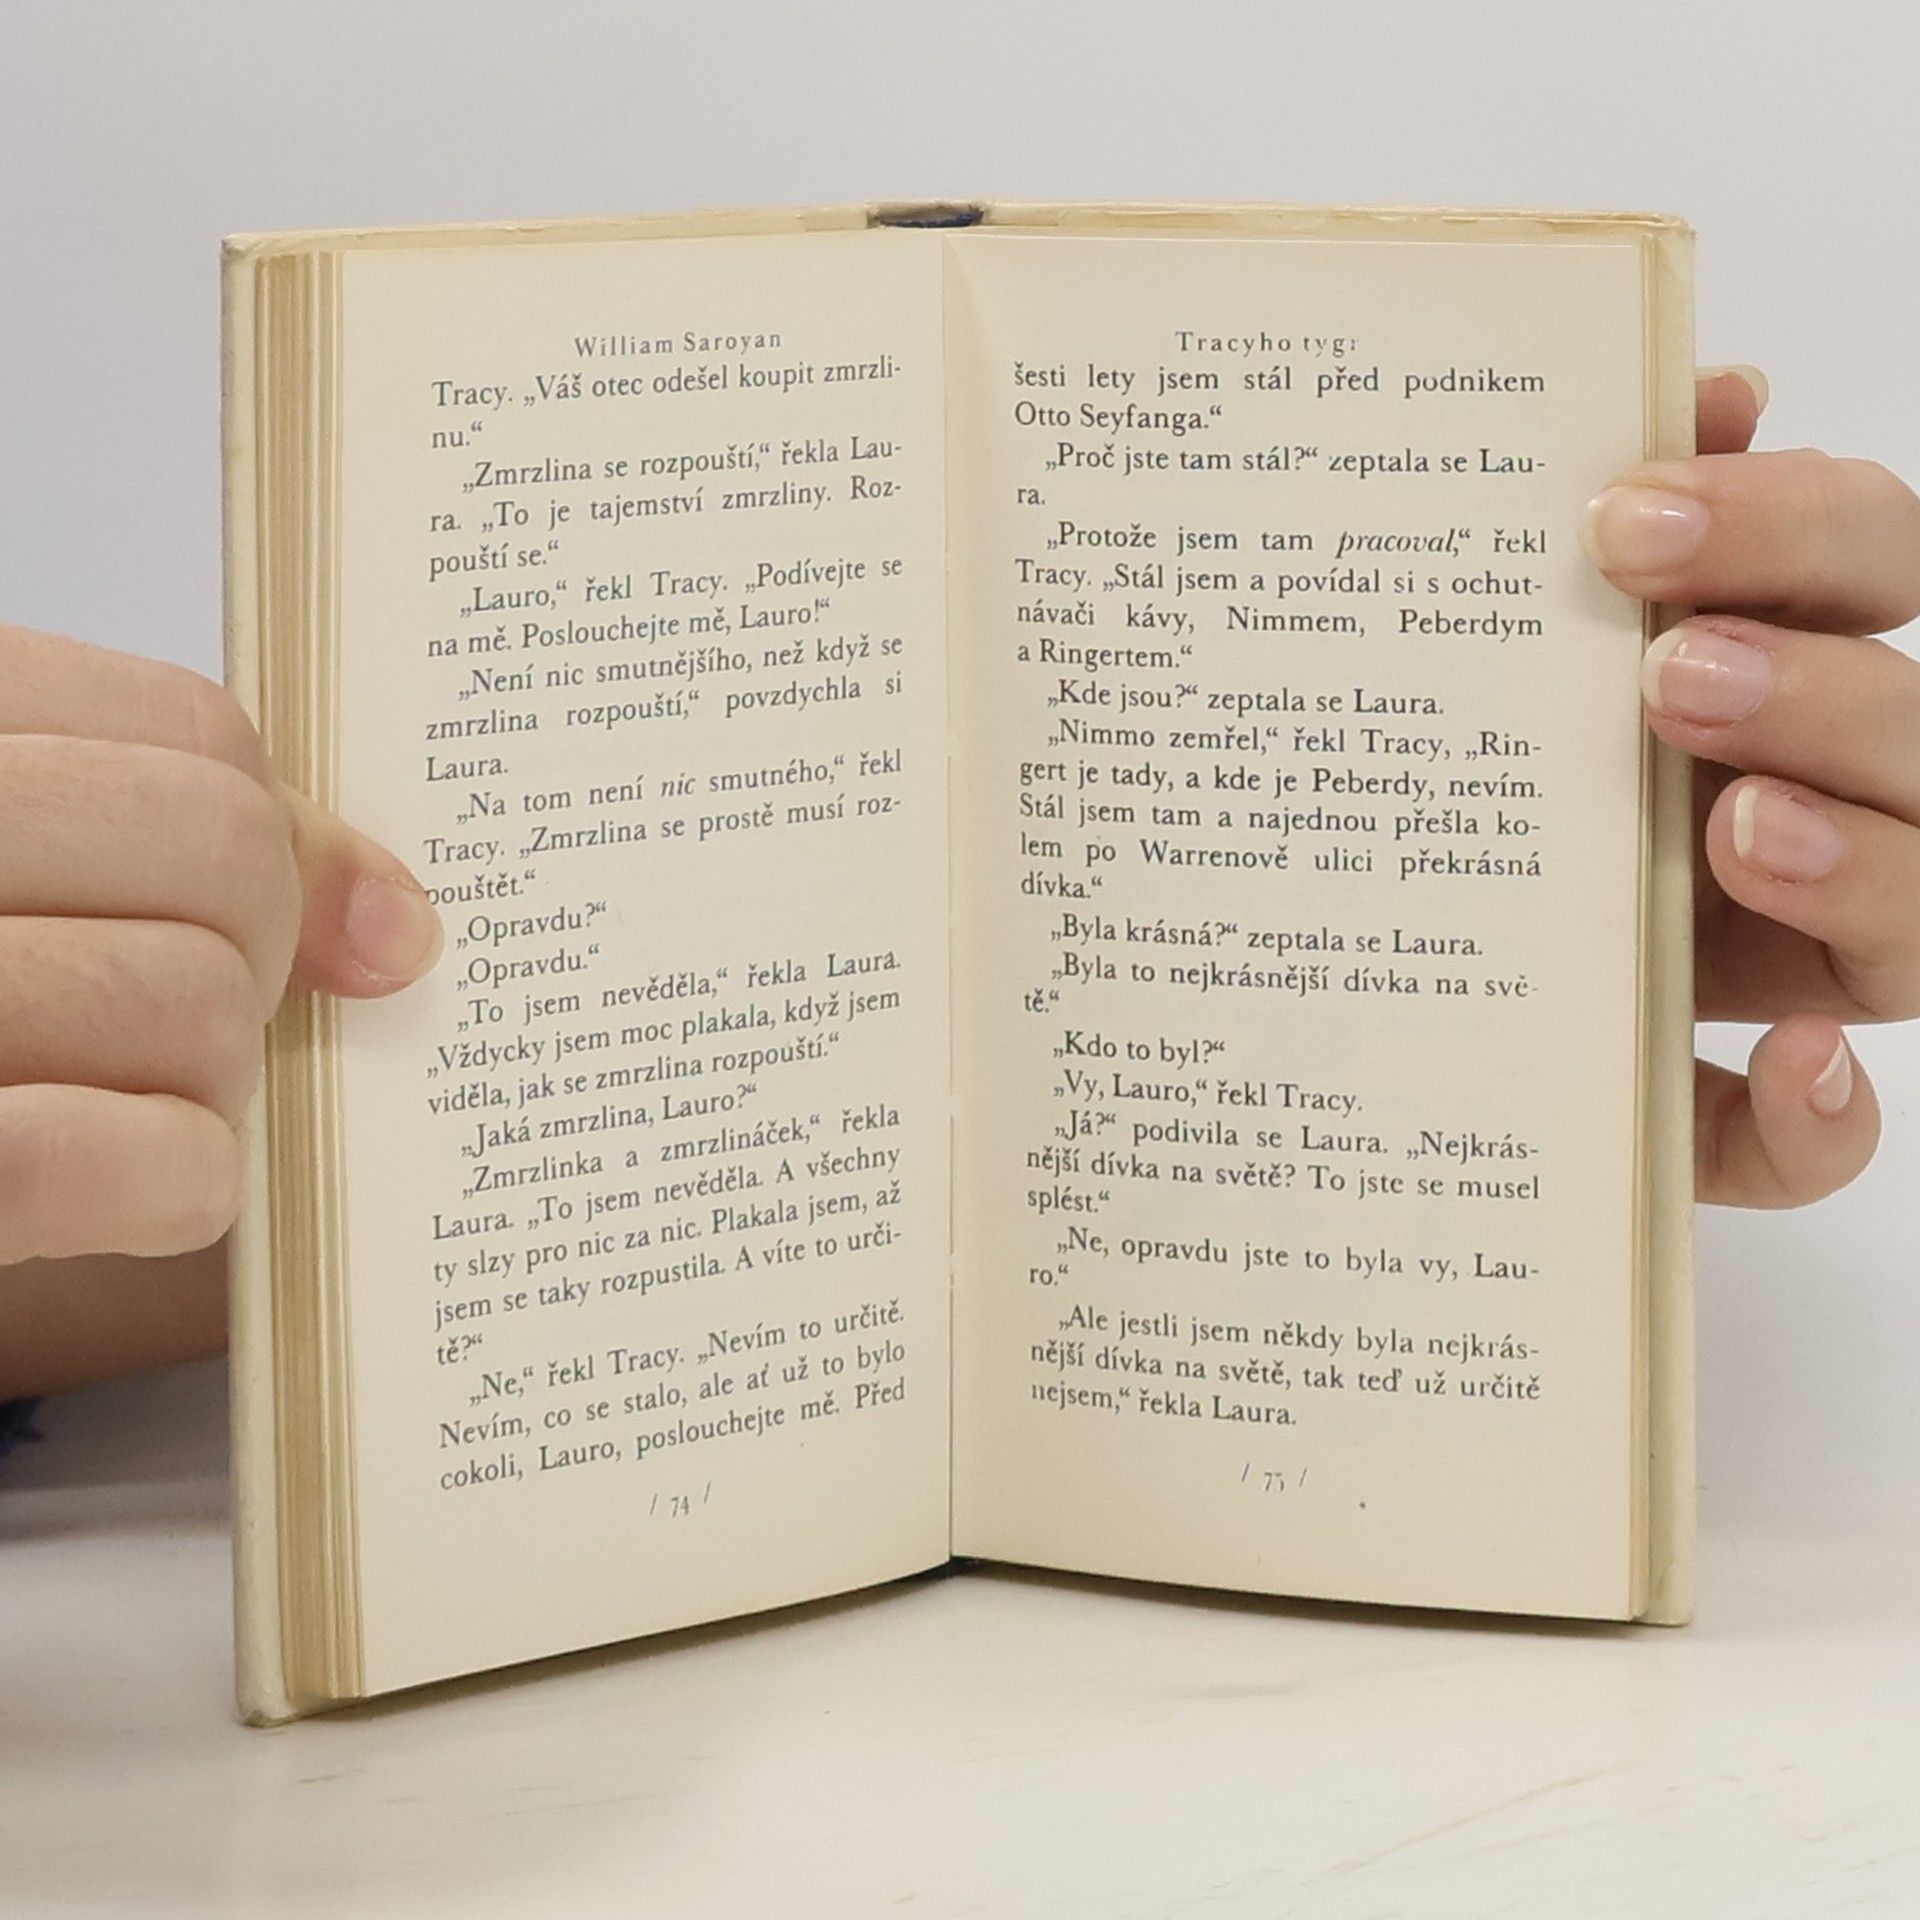 William Saroyan
Tracy. „Váš otec odešel koupit zmrzli-
nu.“
„Zmrzlina se rozpouští,“ řekla Lau-
ra. „To je tajemství zmrzliny. Roz-
pouští se.“
„Lauro,“ řekl Tracy. „Podívejte se
na mě. Poslouchejte mě, Lauro!“
„Není nic smutnějšího, než když se
zmrzlina rozpouští,“ povzdychla si
Laura.
„Na tom není nic smutného,“ řekl
Tracy. „Zmrzlina se prostě musí roz-
pouštět.“
„Opravdu?“
„Opravdu.“
„To jsem nevěděla,“ řekla Laura.
„Vždycky jsem moc plakala, když jsem
viděla, jak se zmrzlina rozpouští.“
„Jaká zmrzlina, Lauro?“
„Zmrzlinka a zmrzlináček,“ řekla
Laura. „To jsem nevěděla. A všechny
ty slzy pro nic za nic. Plakala jsem, až
jsem se taky rozpustila. A víte to urči-
tě?“
„Ne,“ řekl Tracy. „Nevím to určitě.
Nevím, co se stalo, ale ať už to bylo
cokoli, Lauro, poslouchejte mě. Před
/ 74 /
Tracyho tygr
šesti lety jsem stál před podnikem
Otto Seyfanga.“
„Proč jste tam stál?“ zeptala se Lau-
ra.
„Protože jsem tam pracoval,“ řekl
Tracy. „Stál jsem a povídal si s ochut-
návači kávy, Nimmem, Peberdym
a Ringertem.“
„Kde jsou?“ zeptala se Laura.
„Nimmo zemřel,“ řekl Tracy, „Rin-
gert je tady, a kde je Peberdy, nevím.
Stál jsem tam a najednou přešla ko-
lem po Warrenově ulici překrásná
dívka.“
„Byla krásná?“ zeptala se Laura.
„Byla to nejkrásnější dívka na svě-
tě.“
„Kdo to byl?“
„Vy, Lauro,“ řekl Tracy.
„Já?“ podivila se Laura. „Nejkrás-
nější dívka na světě? To jste se musel
splést.“
„Ne, opravdu jste to byla vy, Lau-
ro.“
„Ale jestli jsem někdy byla nejkrás-
nější dívka na světě, tak teď už určitě
nejsem,“ řekla Laura.
/ 75 /